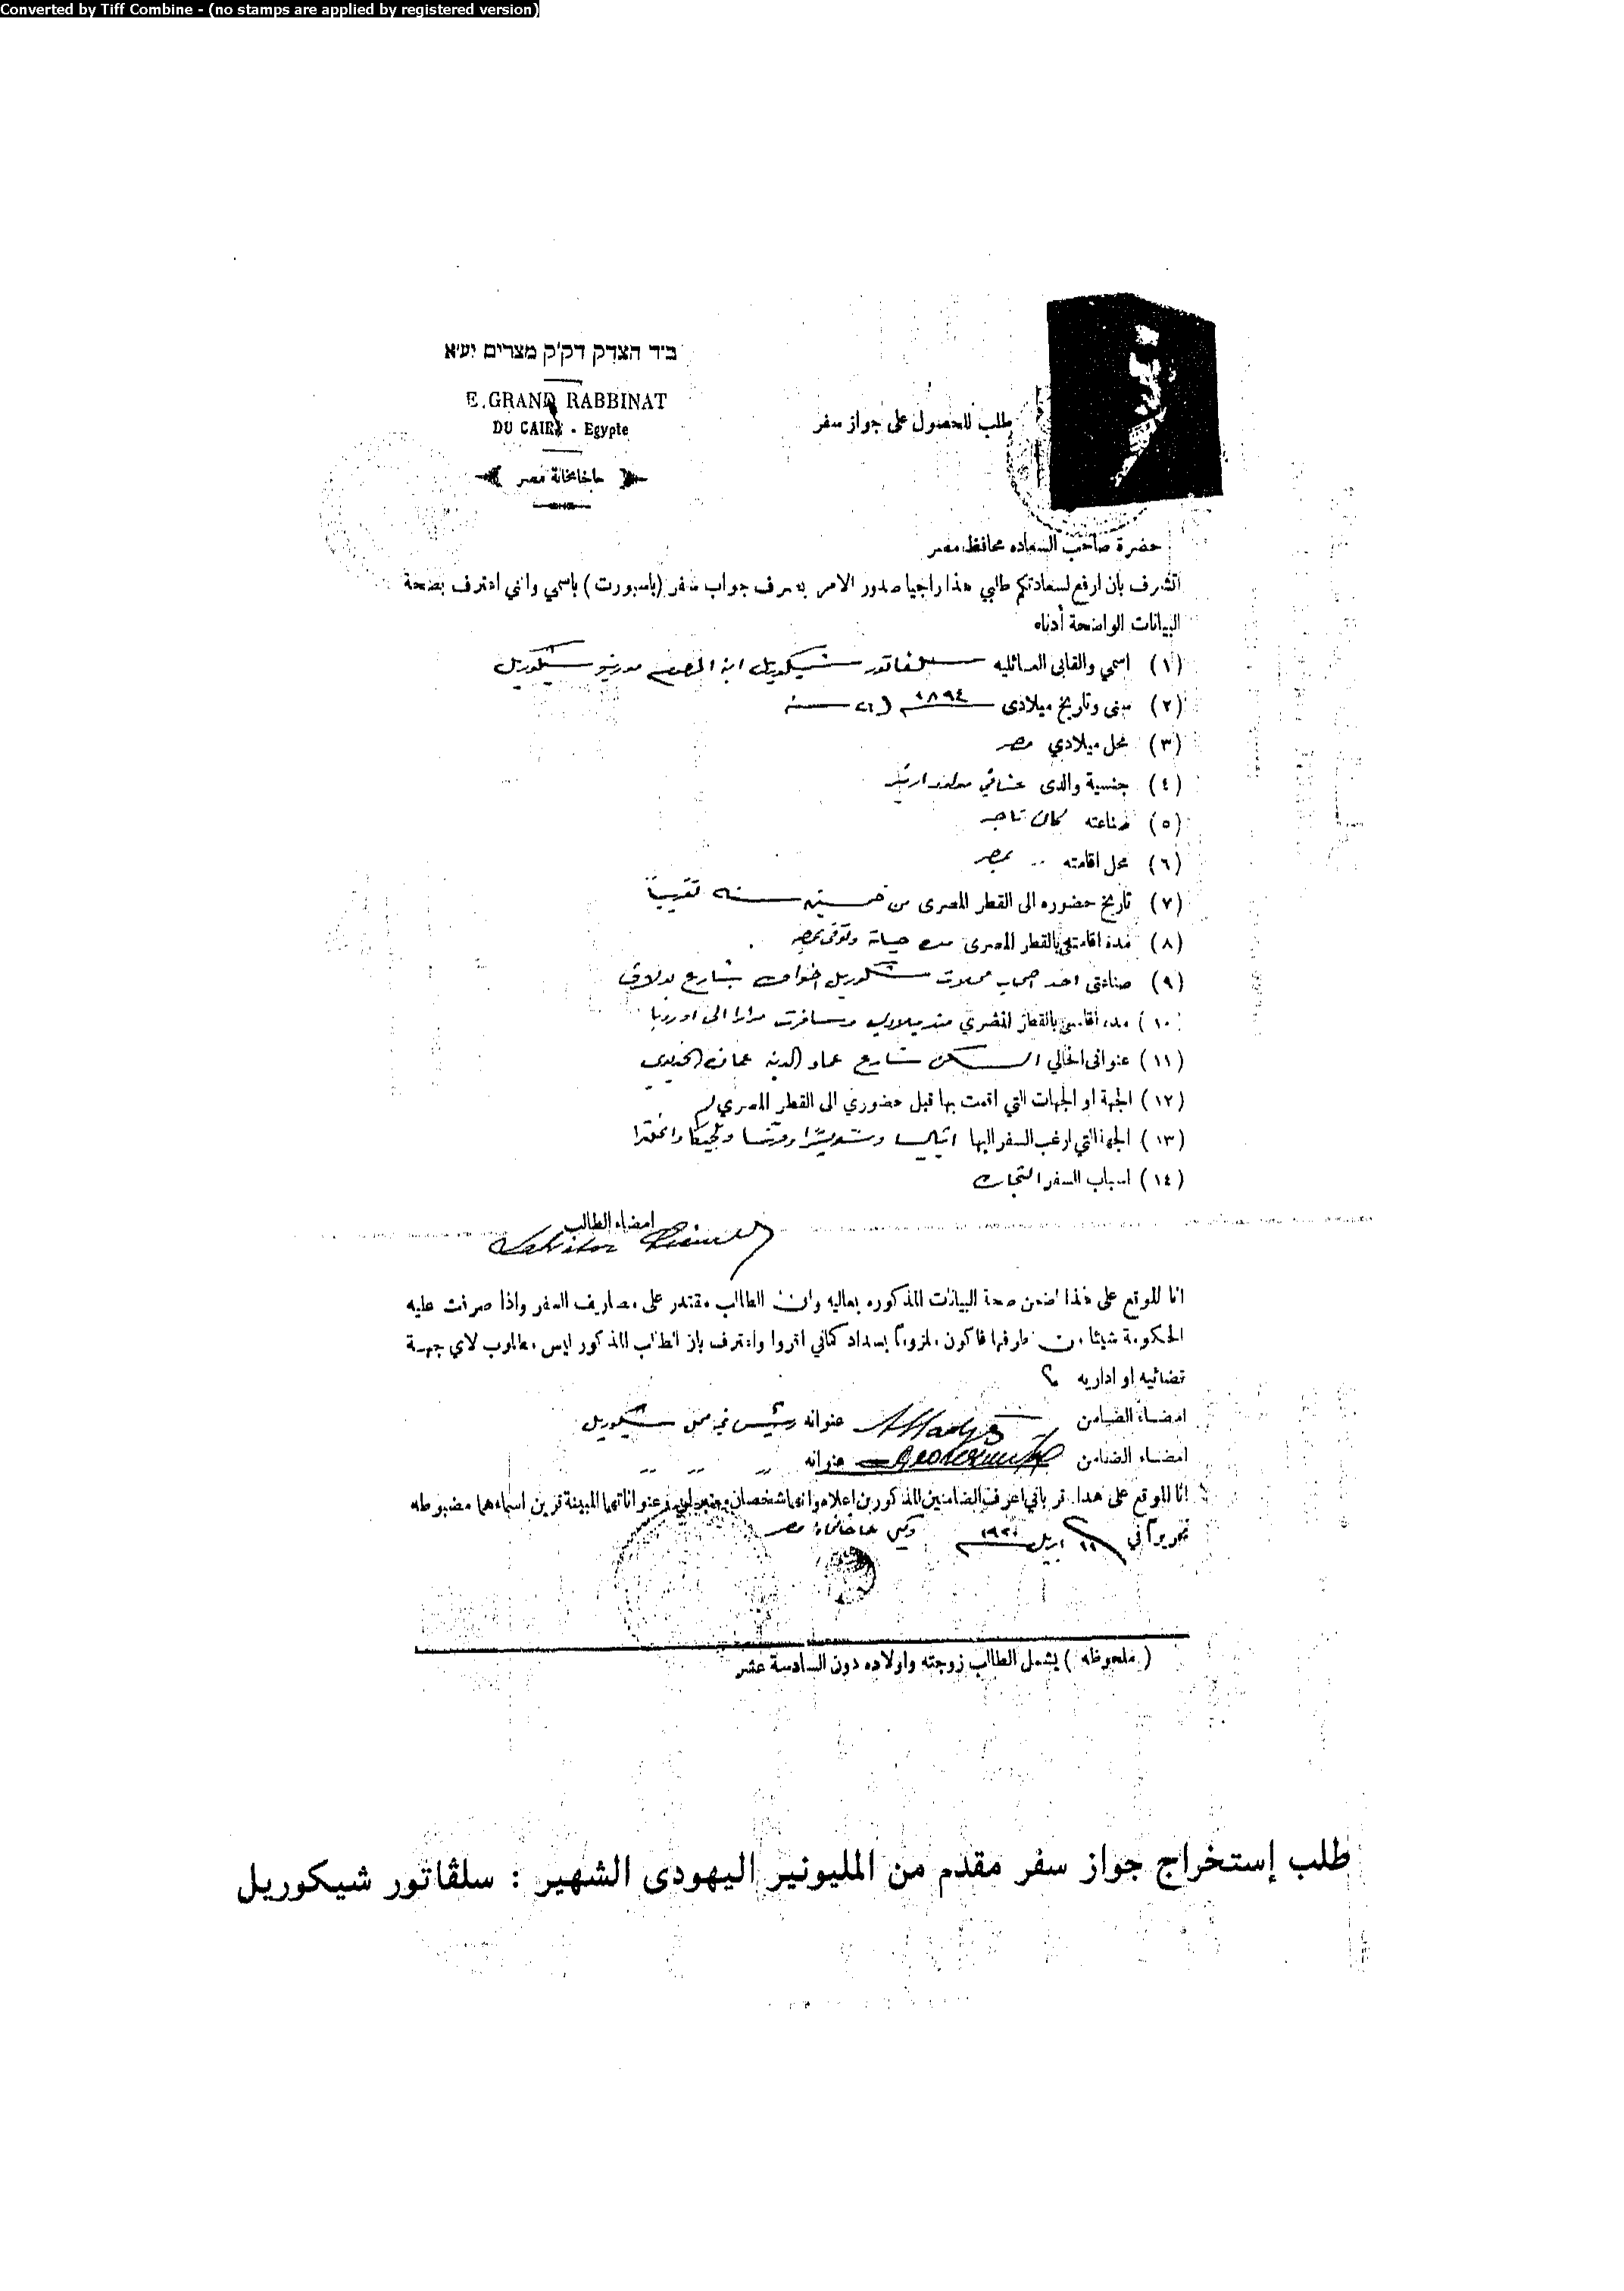 Converted by Tiff Combine - (no stamps are applied by registered version)
ב״ד הצדק דק״ק מצרים יע״א
E. GRAND RABBINAT
DU CAIRE - Egypte
حاخامخانة مصر
طلب للحصول على جواز سفر
حضرة صاحب السعاده محافظ مصر
أتشرف بأن ارفع لسعادتكم طلبي هذا راجيا صدور الامر بصرف جواب سفر (باسبورت) باسمي وانني اعترف بصحة
البيانات الواضحة أدناه
(١) اسمي والقابي العائليه سلفاتور شيكوريل ابن المرحوم مورينو شيكوريل
(٢) سني وتاريخ ميلادى ١٨٩٤ سنة
(٣) محل ميلادي مصر
(٤) جنسية والدى عثماني مولود ازمير
(٥) صناعته كان تاجر
(٦) محل اقامته بمصر
(٧) تاريخ حضوره الى القطر المصرى من خمسين سنه تقريباً
(٨) مدة اقامته بالقطر المصرى مدة حياته وتوفى بمصر
(٩) صناعتى احد اصحاب محلات شيكوريل اخوان بشارع بولاق
(١٠) مدة اقامتي بالقطر المصري منذ ميلادي وسافرت مرارا الى اوروبا
(١١) عنوانى الحالي السكن شارع عماد الدين عمارة الخديوي
(١٢) الجهة او الجهات التي اقمت بها قبل حضوري الى القطر المصري
(١٣) الجهة التي ارغب السفر اليها ايتاليا وسويسرا وفرنسا وبلجيكا وانجلترا
(١٤) اسباب السفر التجارة
امضاء الطالب
انا الموقع على هذا اضمن صحة البيانات المذكوره بعاليه وان الطالب مقتدر على مصاريف السفر واذا صرفت عليه
الحكومة شيئا من طرفها فاكون ملزوما بسداد كما اني اقر واعترف بان الطالب المذكور ليس مطلوب لاي جهة
قضائيه او اداريه
امضاء الضامن عنوانه رئيس في محل شيكوريل
امضاء الضامن عنوانه
انا الموقع على هذا اقر باني اعرف الضامنين المذكورين اعلاه وانهما شخصان معتبران وعنواناتهما المبينة قرين اسماءهما مضبوطه
تحريراً في ١١ ابريل وكيل حاخامخانة مصر
(ملحوظه) يشمل الطالب زوجته واولاده دون السادسة عشر
طلب إستخراج جواز سفر مقدم من المليونير اليهودى الشهير : سلڤاتور شيكوريل